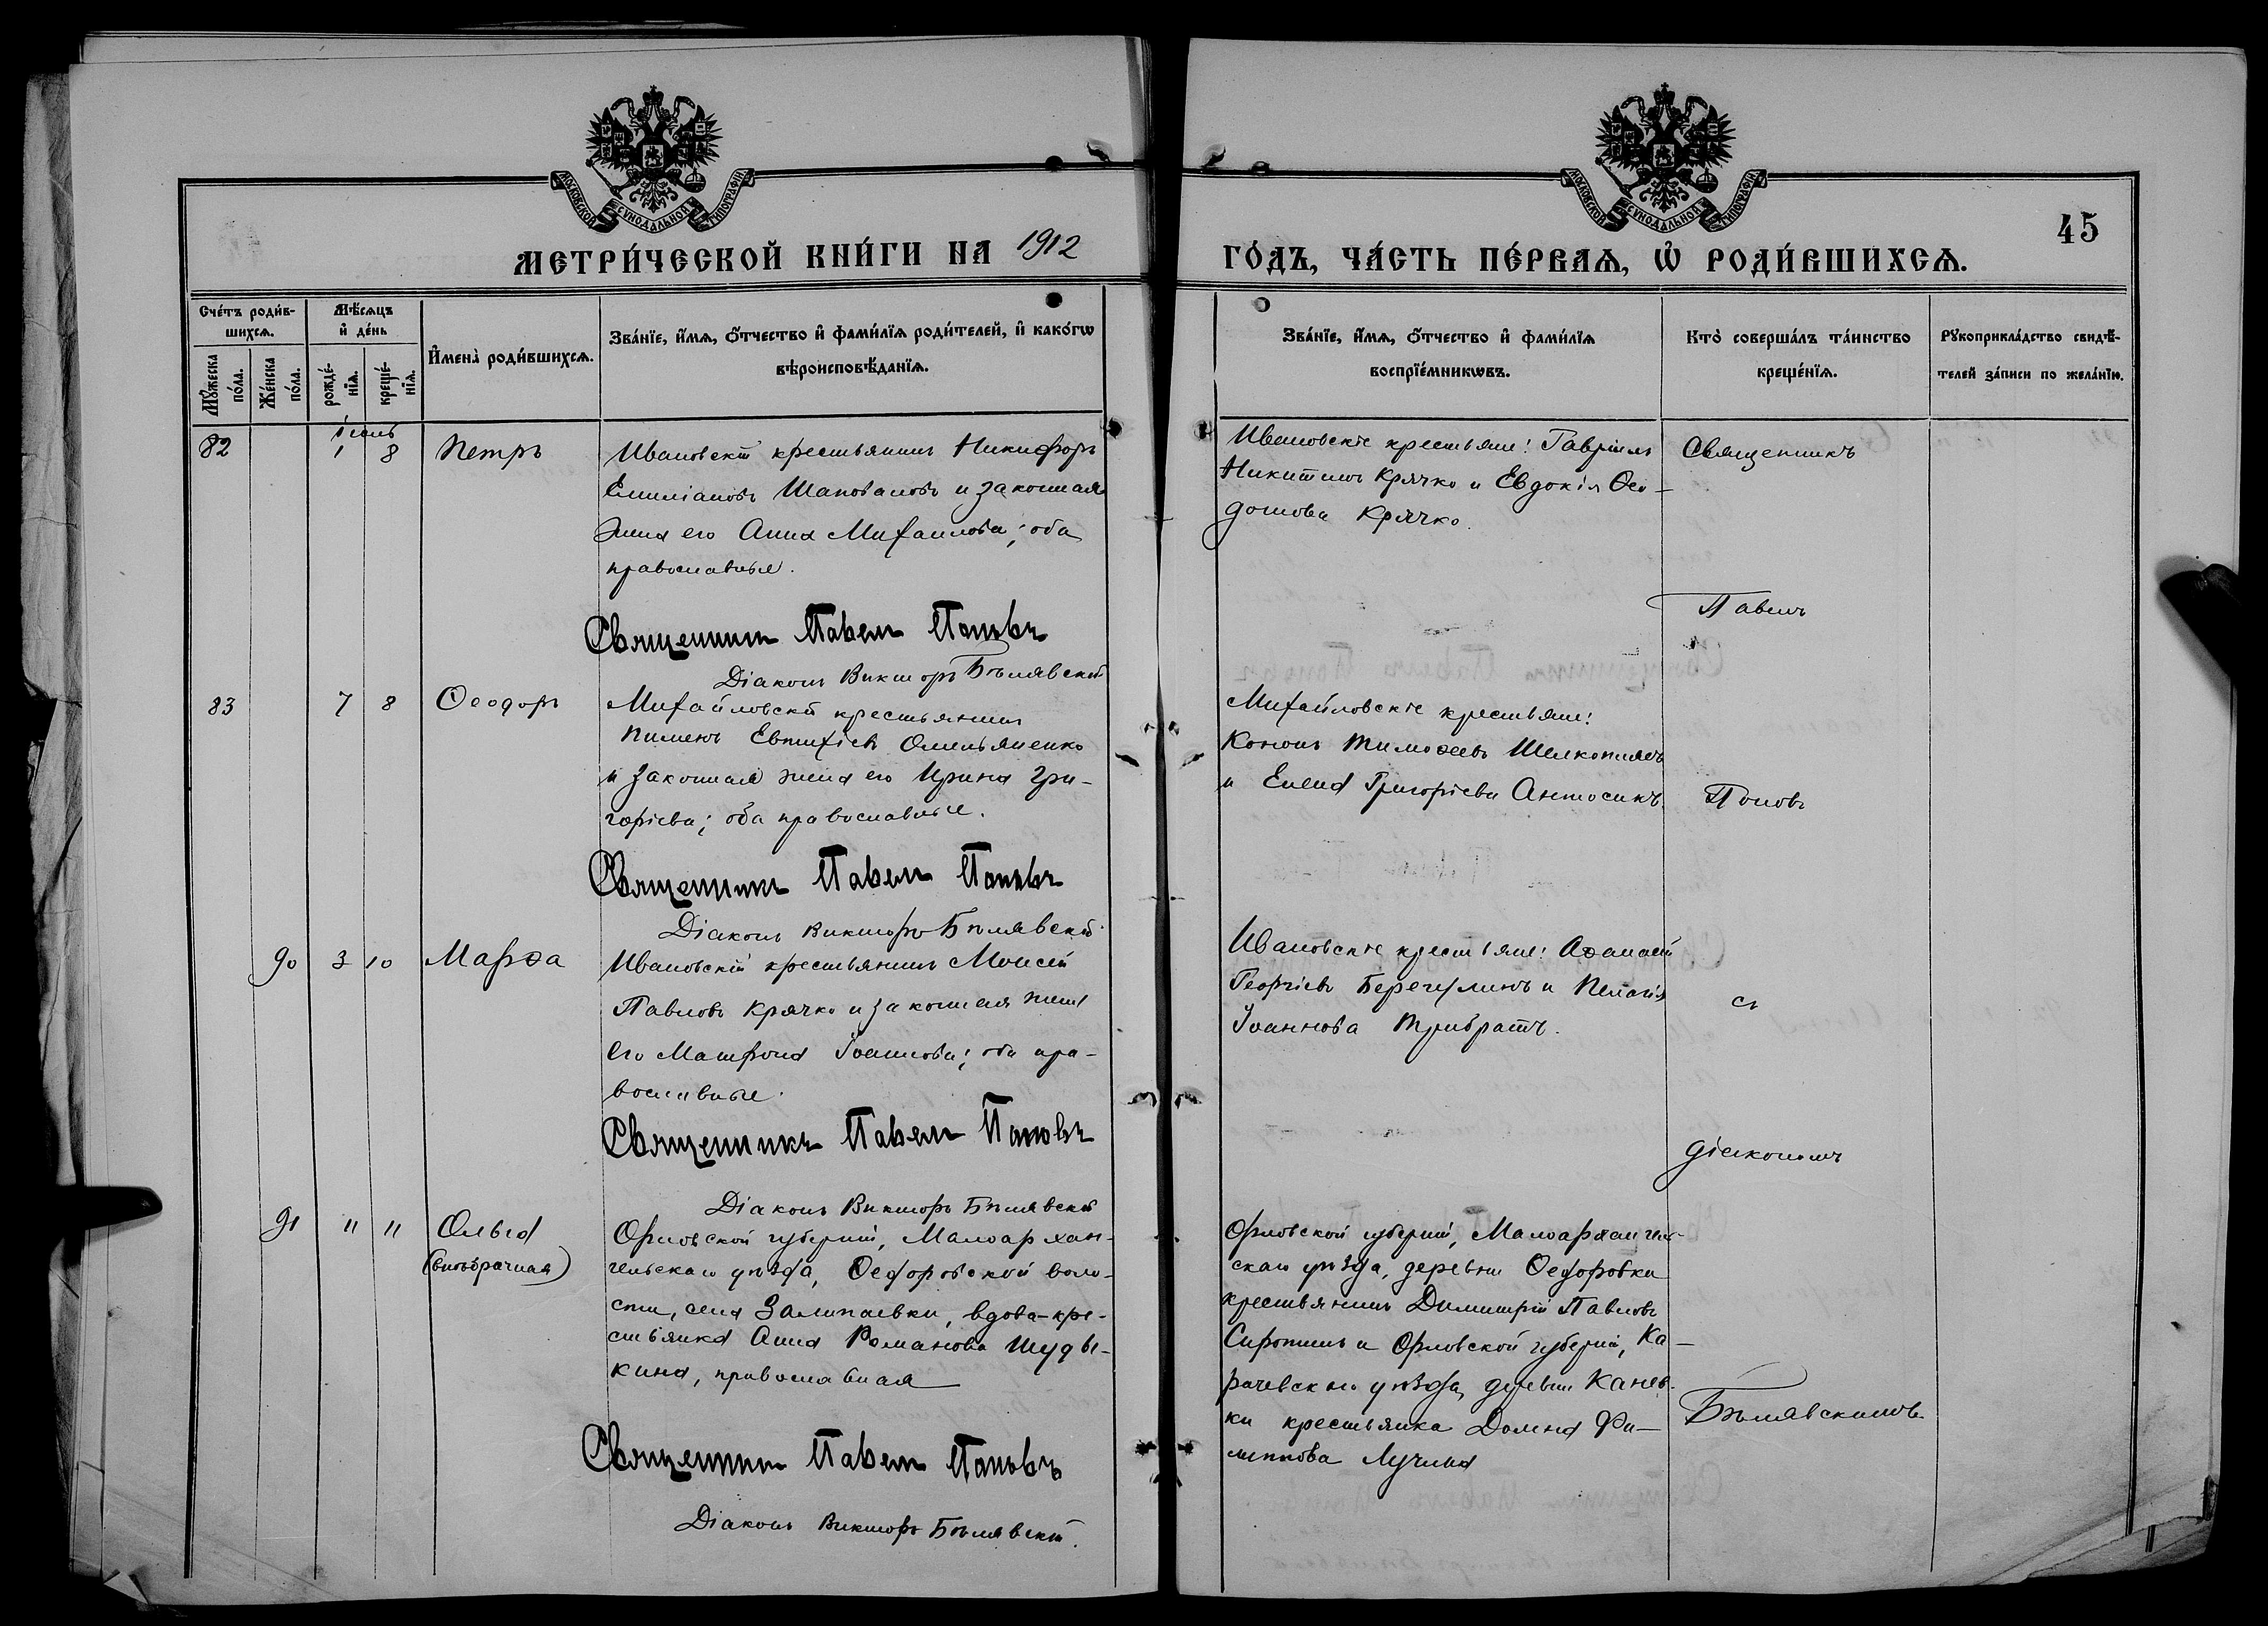 МОСКОВСКОЙ СѴНОДАЛЬНОЙ ТИПОГРАФІИ
МОСКОВСКОЙ СѴНОДАЛЬНОЙ ТИПОГРАФІИ
45
МЕТРИ́ЧЕСКОЙ КНИ́ГИ НА 1912
ГО́ДЪ, ЧА́СТЬ ПЕ́РВАѦ, Ѡ҆ РОДИ́ВШИХСѦ.
Сче́тъ роди́в-
шихсѧ.
Мꙋ́жеска по́ла.
Же́нска по́ла.
Мѣ́сѧцъ
и҆ де́нь
рожде́-
нїѧ.
креще́-
нїѧ.
И҆мена̀ роди́вшихсѧ.
Зва́нїе, и҆́мѧ, ѻ҆́тчество и҆ фами́лїѧ роди́телей, и҆ како́гѡ
вѣроисповѣ́данїѧ.
Зва́нїе, и҆́мѧ, ѻ҆́тчество и҆ фами́лїѧ
воспрїе́мникѡвъ.
Кто̀ соверша́лъ та́инство
креще́нїѧ.
Рꙋкоприкла́дство свидѣ́-
телей за́писи по жела́нїю.
Іюль
82 1 8 Петръ
Ивановскій крестьянинъ Никифоръ
Емиліановъ Шаповаловъ и законная
жена его Анна Михаилова; оба
православные.
Священникъ Павелъ Поповъ
Діаконъ Викторъ Бѣлявскій
Ивановскіе крестьяне: Гавріилъ
Никитинъ Крячко и Евдокія Ѳео-
дотова Крячко.
Священникъ
Павелъ
83 7 8 Ѳеодоръ
Михайловскій крестьянинъ
Пименъ Евтихіевъ Омельяненко
и законная жена его Ирина Гри-
горіева; оба православные.
Священникъ Павелъ Поповъ
Діаконъ Викторъ Бѣлявскій
Михайловскіе крестьяне:
Кононъ Тимоѳеевъ Шелкоплясъ
и Елена Григоріева Антосикъ
Поповъ
90 3 10 Марѳа
Ивановскій крестьянинъ Моисей
Павловъ Крячко и законная жена
его Матрона Іоаннова; оба пра-
вославные.
Священникъ Павелъ Поповъ
Діаконъ Викторъ Бѣлявскій
Ивановскіе крестьяне: Аѳанасій
Георгіевъ и Пелагія
Іоаннова Трибратъ.
съ
діакономъ
91 11 11 Ольга
(внѣбрачная)
Орловской губерніи, Малоархан-
гельскаго уѣзда, Ѳедоровской воло-
сти, села Залипаевки, вдова-кре-
стьянка Анна Романова Шуды-
кина, православная
Священникъ Павелъ Поповъ
Діаконъ Викторъ Бѣлявскій.
Орловской губерніи, Малоархангель-
скаго уѣзда, деревни Ѳедоровки
крестьянинъ Димитрій Павловъ
Сиротинъ и Орловской губерніи, Ка-
рачевскаго уѣзда, деревни
крестьянка Домна Фи-
липпова Лучина
Бѣлявскимъ